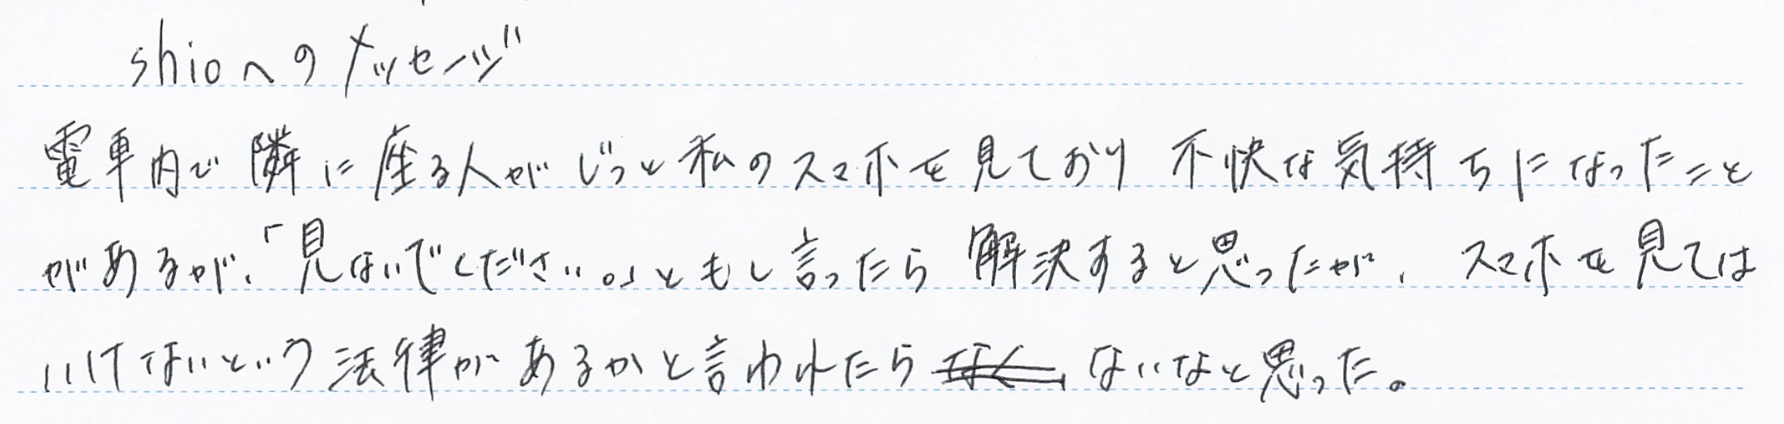 shioへのメッセージ
電車内で隣に座る人がじっと私のスマホを見ており不快な気持ちになったこと
があるが、「見ないでください。」ともし言ったら解決すると思ったが、スマホを見ては
いけないという法律があるかと言われたらないなと思った。